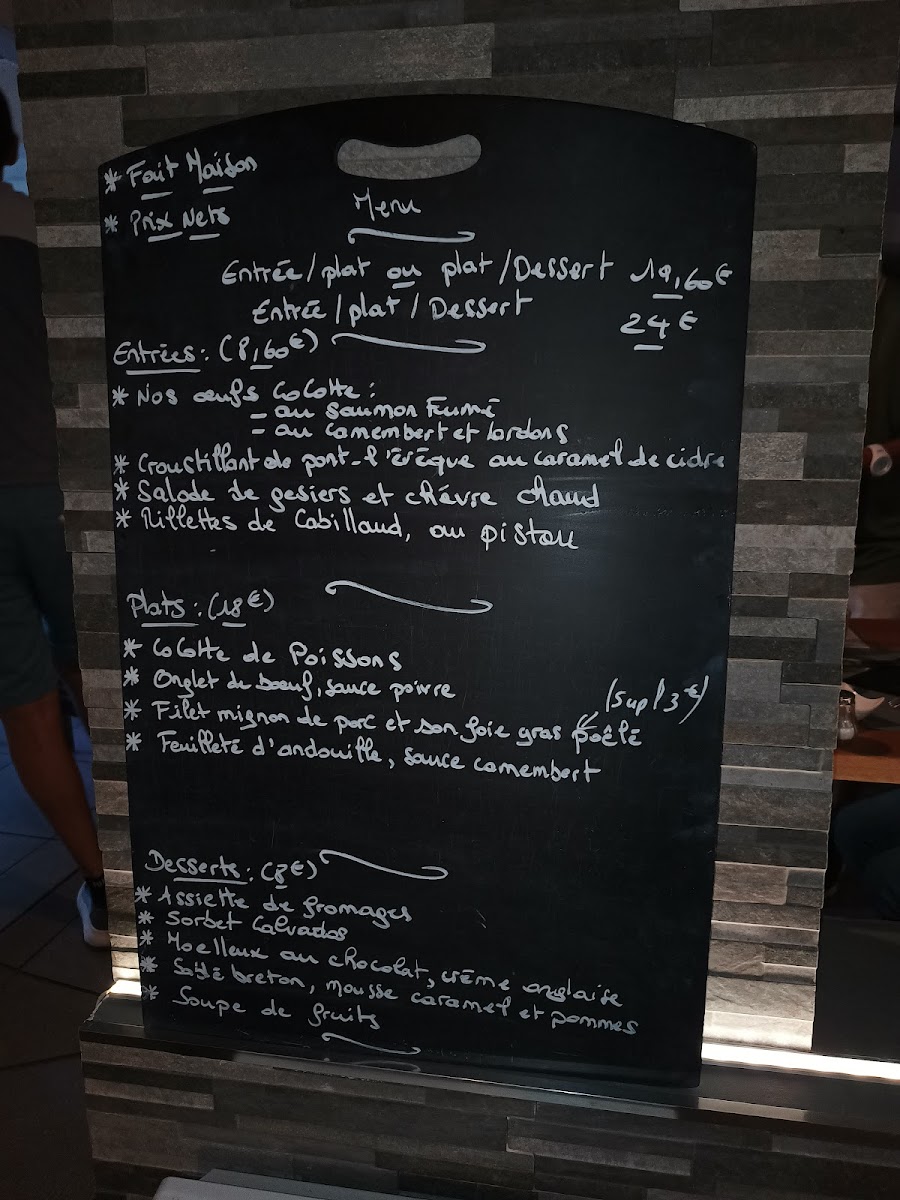 * Fait Maison
* Prix Nets
Menu
Entrée/plat ou plat/Dessert 19,60€
Entrée/plat/Dessert 24€
Entrées: (8,60€)
* Nos œufs cocotte:
- au saumon Fumé
- au camembert et lardons
* Croustillant de pont-l'évêque au caramel de cidre
* Salade de gesiers et chévre chaud
* Rillettes de Cabillaud, au pistou
Plats: (18€)
* Cocotte de Poissons
* Onglet de boeuf, sauce poivre
(sup/3€)
* Filet mignon de porc et son foie gras poêlé
* Feuilleté d'andouille, sauce camembert
Desserts: (8€)
* Assiette de fromages
* Sorbet Calvados
* Moelleux au chocolat, crème anglaise
* Sablé breton, mousse caramel et pommes
* Soupe de fruits